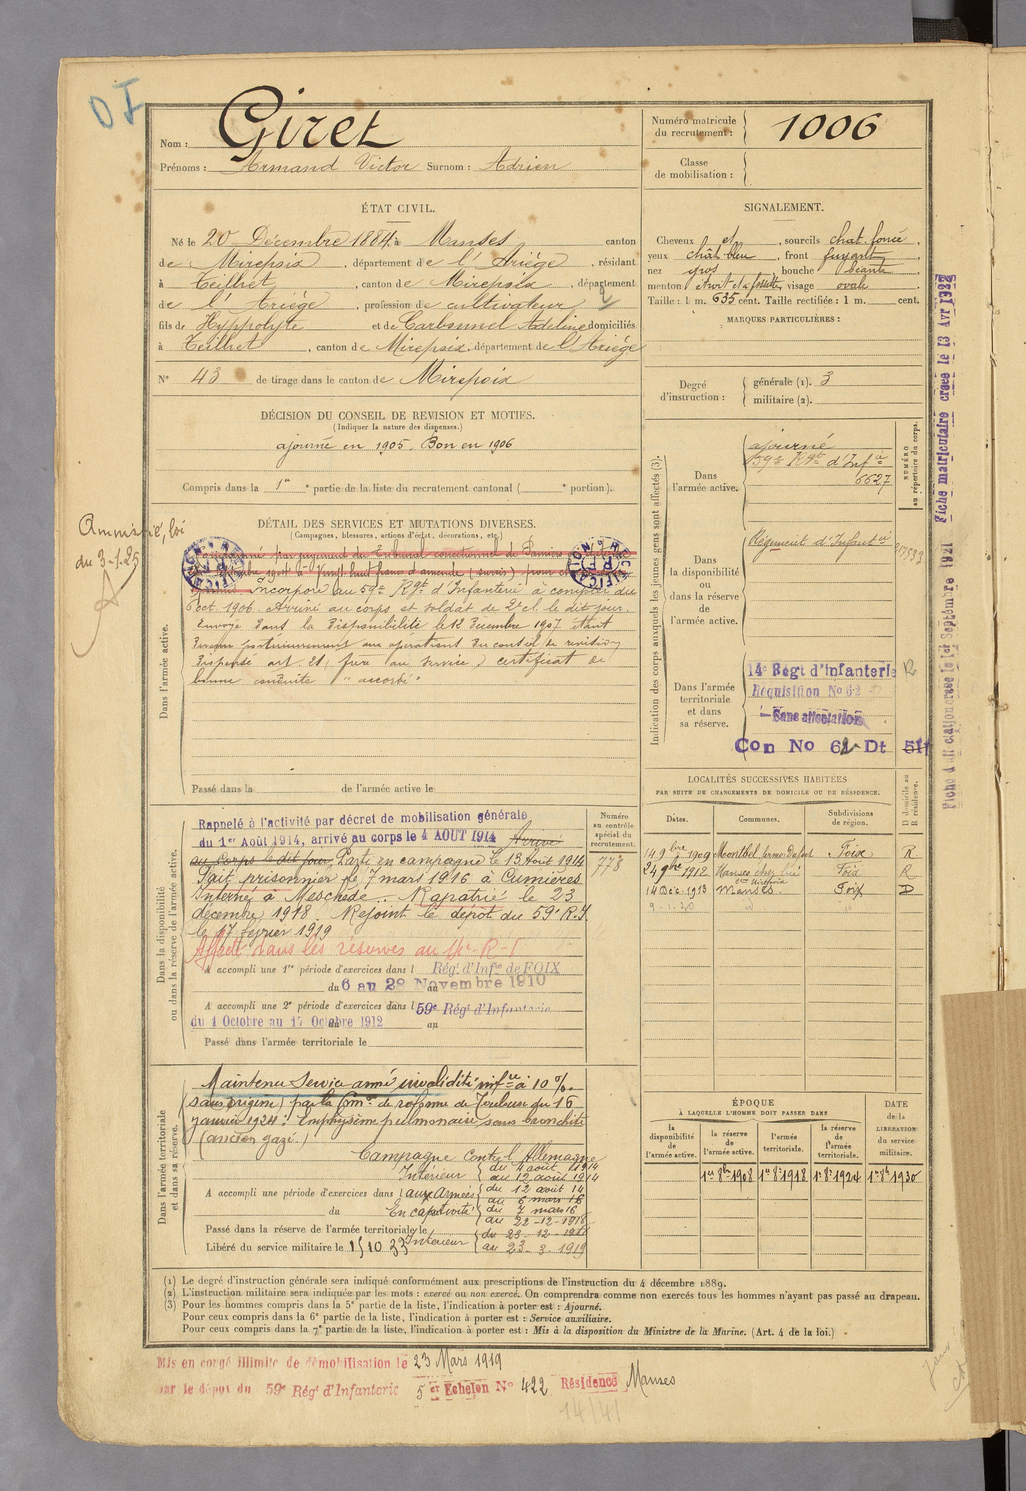 OI
Nom : Giret
Prénoms : Armand Victor Surnom : Adrien
Numéro matricule du recrutement : 1006
Classe de mobilisation :
ÉTAT CIVIL.
Né le 20 Décembre 1884, à Manses canton
de Mirepoix, département de l'Ariége, résidant
à Teilhet, canton de Mirepoix, département
de l'Ariége, profession de cultivateur
fils de Hyppolyte et de Carbonnel Adeline domiciliés
à Teilhet, canton de Mirepoix, département de l'Ariége
N° 43 de tirage dans le canton de Mirepoix
SIGNALEMENT.
Cheveux et, sourcils chat. foncé,
yeux chât. bleu, front fuyant,
nez gros, bouche béante,
menton et à fossette, visage ovale
Taille : 1 m. 635 cent. Taille rectifiée : 1 m. cent.
MARQUES PARTICULIÈRES :
Degré d'instruction : générale (1). 3
militaire (2).
DÉCISION DU CONSEIL DE REVISION ET MOTIFS.
(Indiquer la nature des dispenses.)
ajourné en 1905. Bon en 1906
Compris dans la 1re partie de la liste du recrutement cantonal ( portion).
DÉTAIL DES SERVICES ET MUTATIONS DIVERSES.
(Campagnes, blessures, actions d'éclat, décorations, etc.)
Amnistié, loi
du 3-1-25
RECTIFICATION
RF
Dans l'armée active.
par jugement du Tribunal correctionnel de Pamiers
à Vingt huit francs d'amende (sursis) pour
Incorporé au 59e Rgt d'Infanterie à compter du
6 oct. 1906. Arrivé au corps et soldat de 2e cl. le dit jour.
Envoyé dans la disponibilité le 12 Décembre 1907 étant
devenu postérieurement aux opérations du conseil de revision
dispensé art. 21, (frère au service) certificat de
bonne conduite "accordé"
Passé dans la de l'armée active le
Indication des corps auxquels les jeunes gens sont affectés (3).
NUMÉRO au répertoire du corps.
Dans l'armée active.
ajourné
59e Rgt d'Infie
6627
Dans la disponibilité ou dans la réserve de l'armée active.
Régiment d'Infantie
Dans l'armée territoriale et dans sa réserve.
14e Régt d'infanterie R
Réquisition No 62
Sans affectation
Con No 62 Dt 511
Fiche matriculaire créée le 13 Avr 1932
Septembre 1921
LOCALITÉS SUCCESSIVES HABITÉES
PAR SUITE DE CHANGEMENTS DE DOMICILE OU DE RÉSIDENCE.
D domicile ou R résidence.
Dates. Communes. Subdivisions de région.
14 9bre 1909 Montbel ferme Foix R
24 9bre 1912 Manses chez lui Foix R
con Mirepoix
14 Déc. 1913 Manses Foix D
9-1-20
Dans la disponibilité ou dans la réserve de l'armée active.
Numéro au contrôle spécial du recrutement.
778
Rappelé à l'activité par décret de mobilisation générale
du 1er Août 1914, arrivé au corps le 4 AOUT 1914 Arrivé
au corps le dit jour, Parti en campagne le 13 Août 1914
Fait prisonnier le 7 mars 1916 à Cumières
Interné à Meschede. Rapatrié le 23
décembre 1918. Rejoint le dépot du 59e R.I
le 17 février 1919
Affecté dans les réserves au 14e R-I
A accompli une 1re période d'exercices dans l Régt d'Infie de FOIX
du 6 au 28 Novembre 1910
A accompli une 2e période d'exercices dans l 59e Régt d'Infanterie
du 1 Octobre au 17 Octobre 1912 au
Passé dans l'armée territoriale le
Dans l'armée territoriale et dans sa réserve.
Maintenu Service armé invalidité infre à 10 %.
(sans origine) par la Comon de réforme de Toulouse du 16
janvier 1924 : Emphysème pulmonaire sans bronchite
(ancien gazé.)
Campagne contre l'Allemagne
Intérieur du 4 août 1914
au 12 août 1914
A accompli une période d'exercices dans l aux Armées du 12 août 14
au 6 mars 16
du En captivité du 7 mars 16
au 22-12-1918
Passé dans la réserve de l'armée territoriale le du 23-12-1918
Libéré du service militaire le 15 10 33 Intérieur au 23-3-1919
ÉPOQUE
À LAQUELLE L'HOMME DOIT PASSER DANS
DATE de la LIBÉRATION du service militaire.
la disponibilité de l'armée active. la réserve de l'armée active. l'armée territoriale. la réserve de l'armée territoriale.
1er 8bre 1908 1er 8e 1918 1er 8e 1924 1er 8e 1930
(1) Le degré d'instruction générale sera indiqué conformément aux prescriptions de l'instruction du 4 décembre 1889.
(2) L'instruction militaire sera indiquée par les mots : exercé ou non exercé. On comprendra comme non exercés tous les hommes n'ayant pas passé au drapeau.
(3) Pour les hommes compris dans la 5e partie de la liste, l'indication à porter est : Ajourné.
Pour ceux compris dans la 6e partie de la liste, l'indication à porter est : Service auxiliaire.
Pour ceux compris dans la 7e partie de la liste, l'indication à porter est : Mis à la disposition du Ministre de la Marine. (Art. 4 de la loi.)
Mis en congé illimité de démobilisation le 23 Mars 1919
par le dépot du 59e Régt d'Infanterie 5 er Echelon N° 422 Résidence Manses
14/41